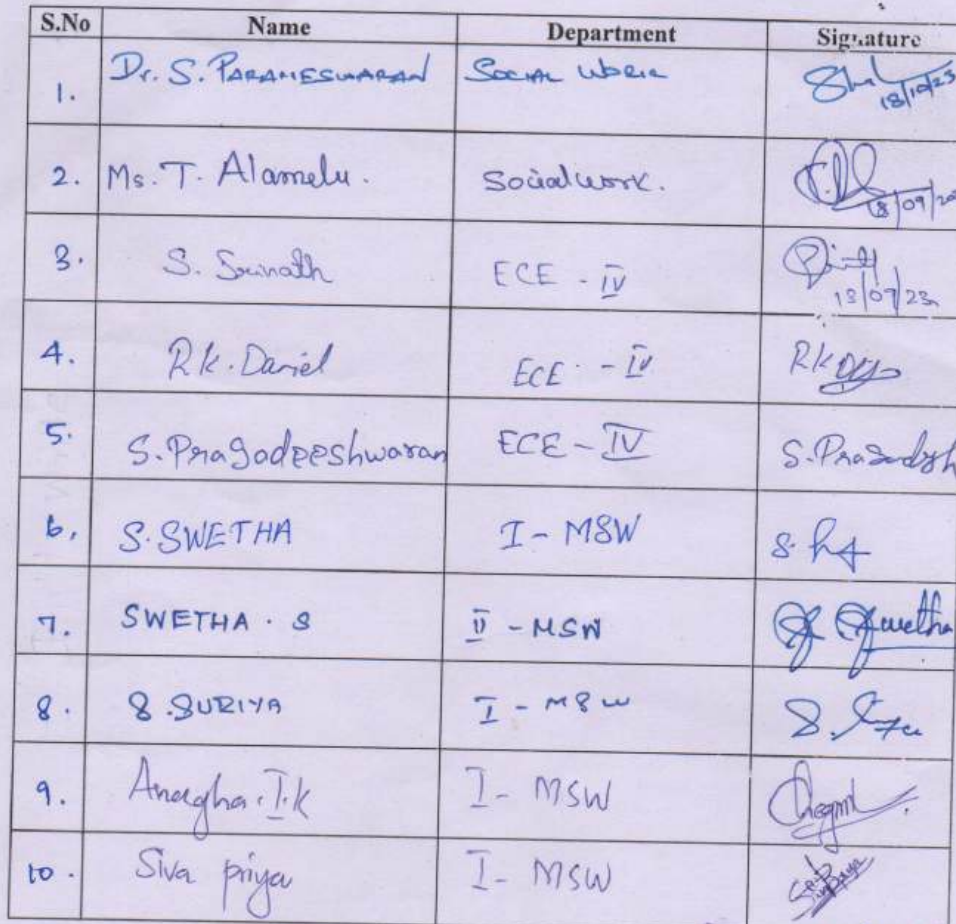 S.No Name Department Signature
1. Dr. S. PARAMESWARAN Social Work
2. Ms. T. Alamelu. Social work. 18/09/20
3. S. Srinath ECE - IV 18/09/23
4. R.K. Daniel ECE - IV RK
5. S. Pragadeeshwaran ECE - IV S.
6. S. SWETHA I - MSW S.
7. SWETHA . S II - MSW Swetha
8. S. SURIYA I - MSW S.
9. Anagha. T.K I - MSW
10. Siva priya I - MSW